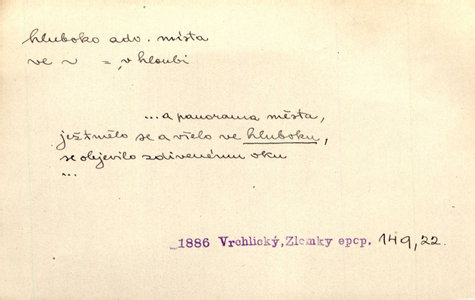 hluboko adv. místa
ve ~ = „v hloubi
...a panorama města,
jež tmělo se a vřelo ve hluboku,
se objevilo zdivenému oku
...
1886 Vrchlický, Zlomky epop. 149,22.